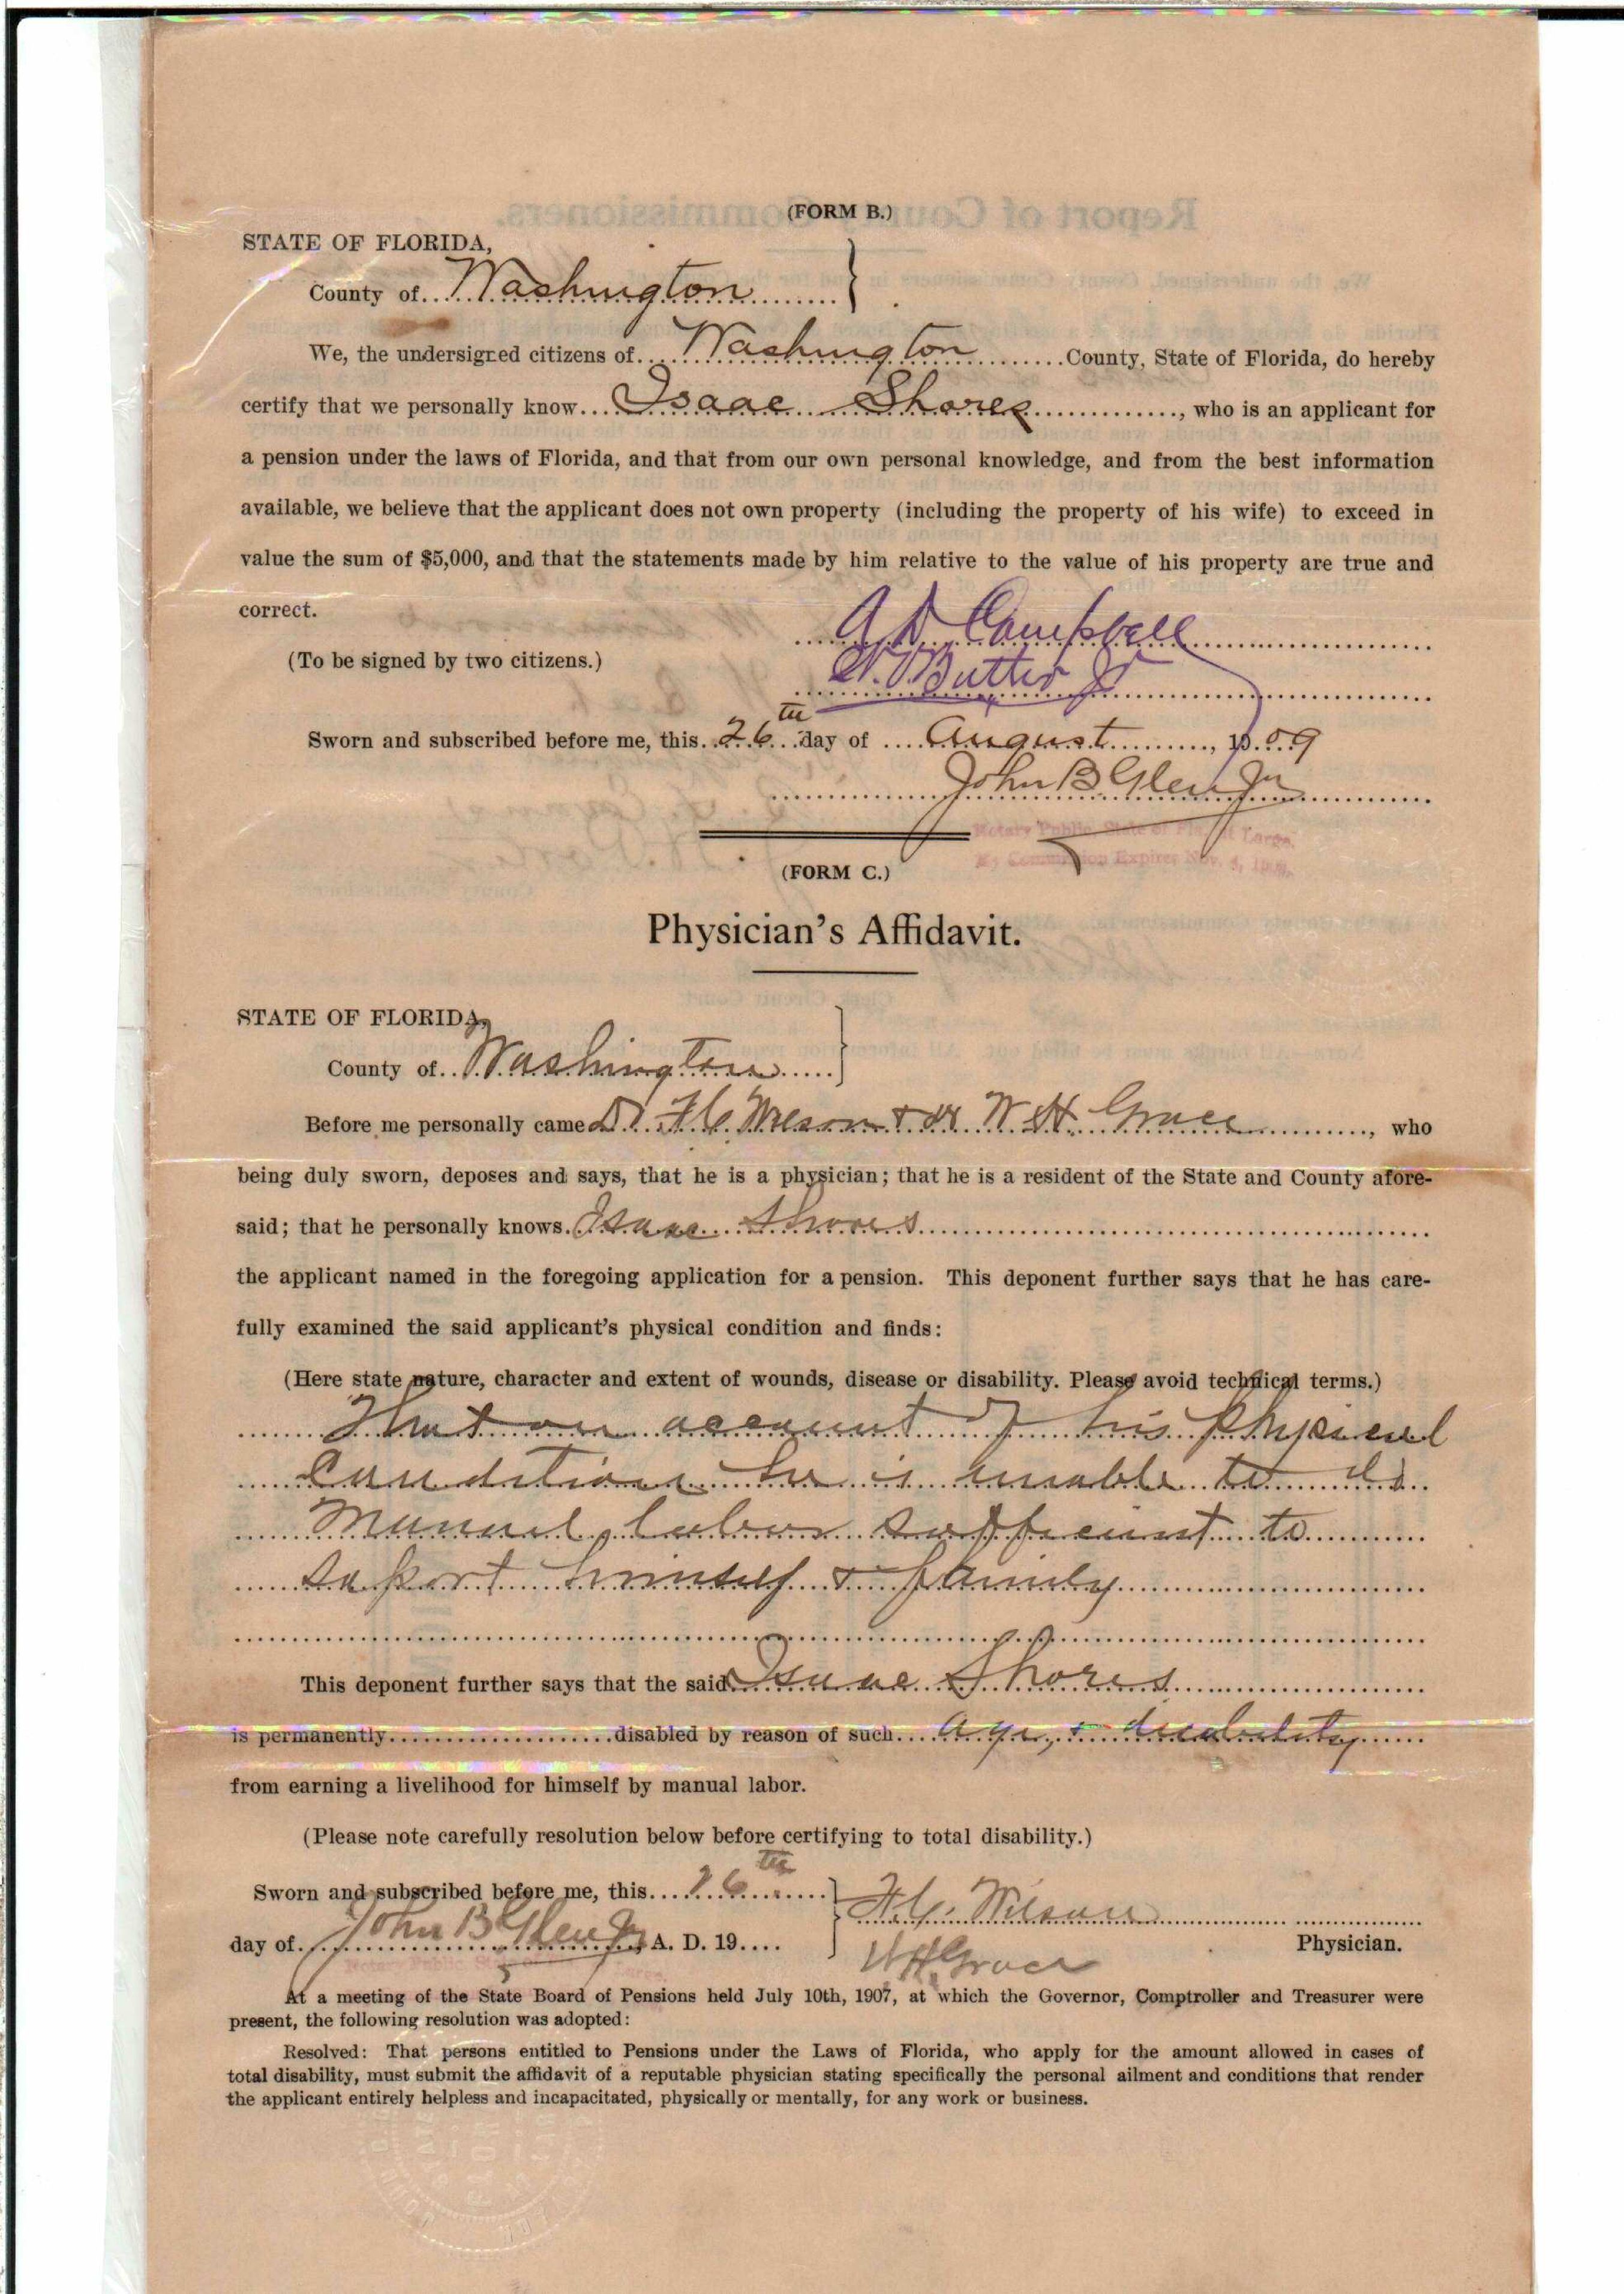 (FORM B.)
STATE OF FLORIDA,
County of Washington
We, the undersigned citizens of Washington County, State of Florida, do hereby
certify that we personally know Isaac Shores, who is an applicant for
a pension under the laws of Florida, and that from our own personal knowledge, and from the best information
available, we believe that the applicant does not own property (including the property of his wife) to exceed in
value the sum of $5,000, and that the statements made by him relative to the value of his property are true and
correct.
A D Campbell
(To be signed by two citizens.)
Butler Jr
Sworn and subscribed before me, this 26th day of August, 1909
John B Glen Jr
Notary Public, State of Fla. at Large.
My Commission Expires Nov.
(FORM C.)
Physician's Affidavit.
STATE OF FLORIDA,
County of Washington
Before me personally came Dr F C Wilson + dr W H Grace, who
being duly sworn, deposes and says, that he is a physician; that he is a resident of the State and County afore-
said; that he personally knows Isaac Shores
the applicant named in the foregoing application for a pension. This deponent further says that he has care-
fully examined the said applicant's physical condition and finds:
(Here state nature, character and extent of wounds, disease or disability. Please avoid technical terms.)
That on account of his physical
Condition he is unable to do
Manual labor sufficient to
suport himself & family
This deponent further says that the said Isaac Shores
is permanently disabled by reason of such age, + disability
from earning a livelihood for himself by manual labor.
(Please note carefully resolution below before certifying to total disability.)
Sworn and subscribed before me, this 26th
F C. Wilson
day of John B Glen Jr, A. D. 19
Physician.
W H Grace
Notary Public
At a meeting of the State Board of Pensions held July 10th, 1907, at which the Governor, Comptroller and Treasurer were
present, the following resolution was adopted:
Resolved: That persons entitled to Pensions under the Laws of Florida, who apply for the amount allowed in cases of
total disability, must submit the affidavit of a reputable physician stating specifically the personal ailment and conditions that render
the applicant entirely helpless and incapacitated, physically or mentally, for any work or business.